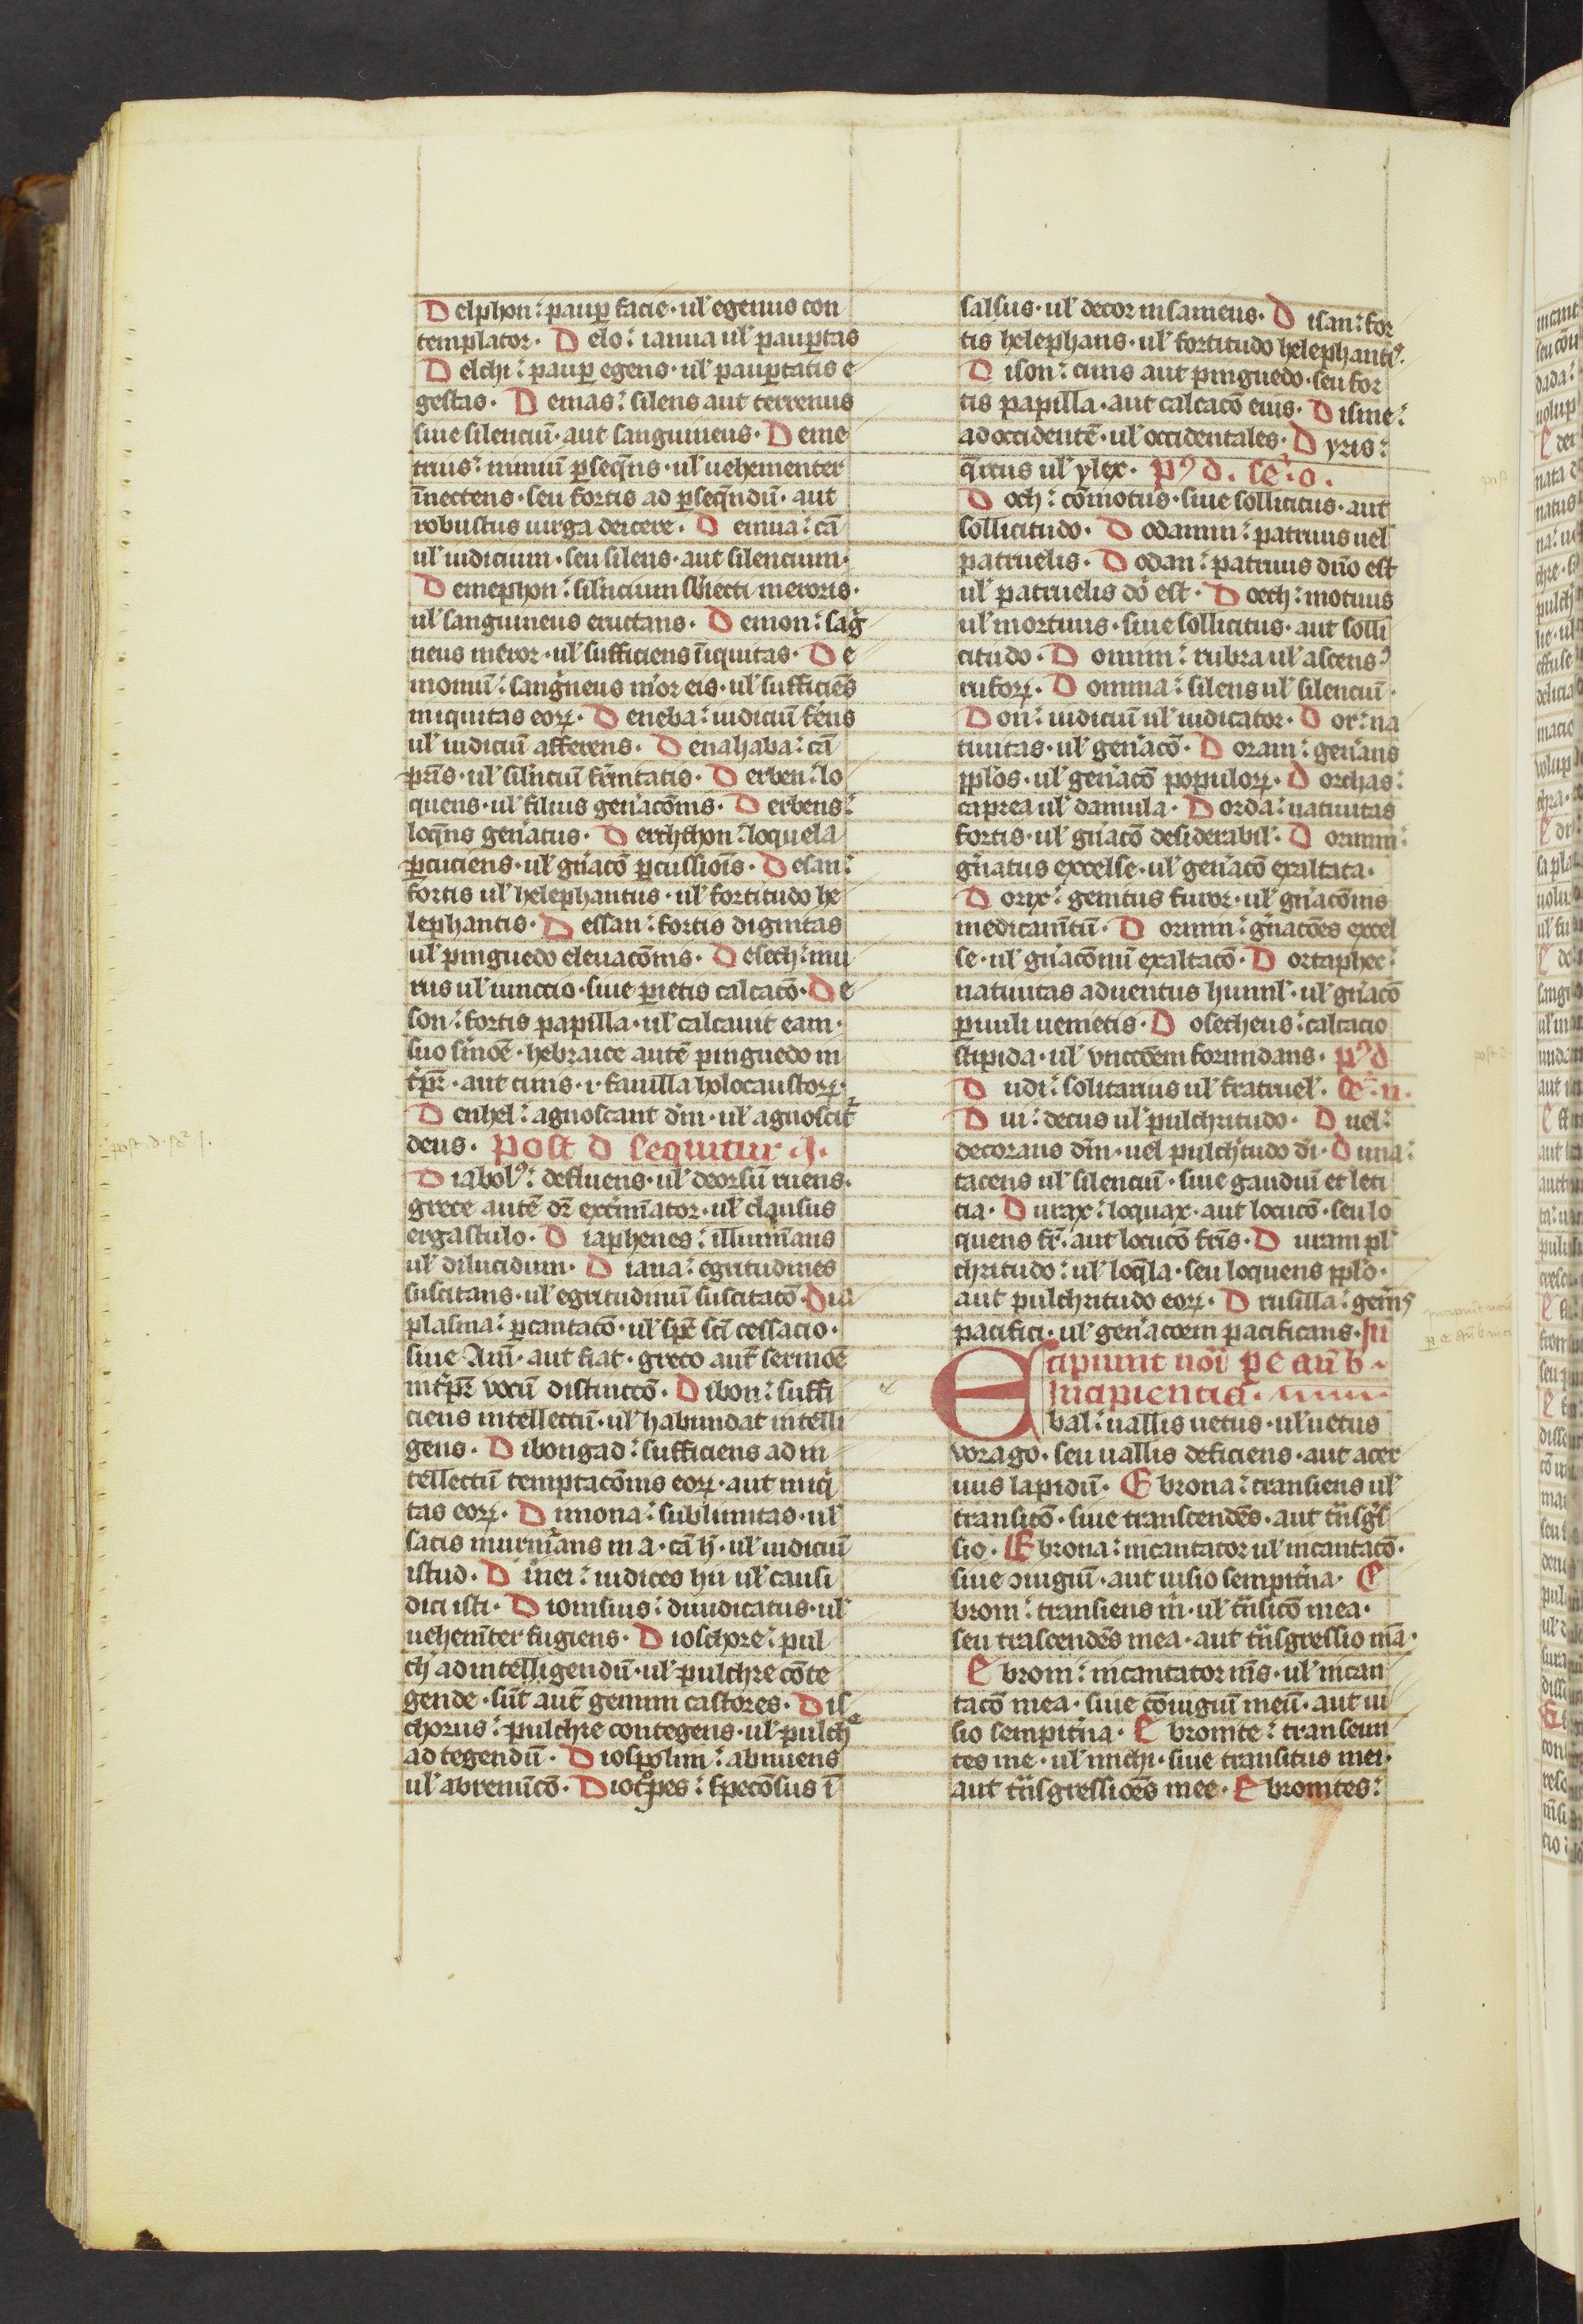 Delphon: paup facie. ul' egenus con
templator. Delo: ianua ul' paupertas
Delchi: paup egens. ul' paupertatis e
gestas. Demas: silens aut terrenus
siue silenciū. aut sanguineus. Deme
trius: nimiū perseq̄ns. ul' uehementer
īnectens. seu fortis ad perseq̄ndū. aut
robustus uirga deicere. Demna: cā
ul' iudicium. seu silens. aut silencium.
Demephon: silncium sbiecti meroris.
ul' sanguineus eructans. Demon: sag
neus meror. ul' sufficiens īiquitas. De
moniū: sangneus mor eis. ul' sufficiēs
iniquitas eoꝝ. Deneba: iudiciū ferēns
ul' iudiciū afferens. Denahaba: cā
prīs. ul' silnciū fernitatis. Derben: lo
quens. ul' filius gen'acōnis. Derbens:
loq̄ns gen'atus. Derethon: loquela
percuciens. ul' gn'acō percussiōis. Desan:
fortis ul' helephantus. ul' fortitudo he
lephantis. Dessan: fortis dignitas
ul' pinguedo eleuacōnis. Desech: mu
rus ul' iunctio. siue parietis calcacō. De
son: fortis papilla. ul' calcauit eam.
suo sīmōe. hebraice autē pinguedo in
t'pr. aut cinis. i. fauilla holocaustoꝝ.
Denhel: agnoscant dm̄. ul' agnoscit
deus. Post D sequitur .I.
Diabol9: defluens. ul' deorsū ruens.
grece autē dr̄ exc'īmator. ul' clausus
ergastulo. Diaphenes: illumīans
ul' dilucidum. Diana: egritudines
suscitans. ul' egritudinū suscitacō. Dia
plasma: percantacō. ul' spē scī cessacio.
siue Am̄. aut fiat. greco aut sermōe
int'pr vocū distinccō. Dibon: suffi
ciens intellectū. ul' habundat intelli
gens. Dibongad: sufficiens ad in
tellectū temptacōnis eoꝝ. aut niqi
tas eoꝝ. Dimona: sublimitas. ul'
satis murmrans in a. cā h'. ul' iudiciū
istud. Dinei: iudices hii ul' causi
dici isti. Dionisius: diiudicatus. ul'
uehemn̄ter fugiens. Dioschore: pul
ch' ad intelligendū. ul' pulchre cōte
gende. sūt aut gemini castores. Dis
chorus: pulchre contegens. ul' pulche
ad tegendū. Diospolim: abnuens
ul' abrenūcō. Diot'pes: specōsus ī
salsus. ul' decor insaniens. Disan: for
tis helephans. ul' fortitudo helephanti9.
Dison: cinis aut pinguedo. seu for
tis papilla. aut calcacō eius. Disine:
ad occidentē. ul' occidentales. Dyris:
q̄rcus ul' ylex. p9 d. se: o.
Doch: cōmotus. siue sollicitus. aut
sollicitudo. Dodamim: patruus uel
patruelis. Dodan: patruus dīiō est
ul' patruelis dō est. Doech: motuus
ul' mortuus. siue sollicitus. aut solli
citudo. Domim: rubra ul' ascens9
rufoꝝ. Domma: silens ul' silenciū.
Don: iudiciū ul' iudicator. Dor: na
tiuitas. ul' gen'acō. Doram: gen'ans
pplos. ul' gen'acō populoꝝ. Dorchas:
caprea ul' damula. Dorda: natiuitas
fortis. ul' gn'acō desiderabil'. Dorimm:
gn'atus excelse. ul' gen'acō exaltata.
Dorix: genitus furor. ul' gn'acōnis
medicamtū. Dorimn: gn'acōes excel
se. ul' gn'acōnū exaltacō. Dortaphee:
natiuitas aduentus huml'. ul' gn'acō
paruuli uenietis. Dosetheus: calcacio
stipida. ul' vnccōem forundans. p9 d
Dudi: solitarius ul' fratruel'. se: u.
Dui: decus ul' pulchritudo. Duel:
decorans dm̄. uel pulch'tudo di. Duma:
tacens ul' silenciū. siue gaudiū et leti
cia. Durax: loquax. aut locucō. seu lo
quens fr'. aut locucō frīs. Duram pl'
chritudo: ul' loq̄la. seu loquens pplo.
aut pulchritudo eoꝝ. Drusilla: gen'ās
pacifici. ul' gen'acoem pacificans. In
cipiunt nōi p e an b
Incipiencia.
Ebal: uallis uetus. ul' uetus
vorago. seu uallis deficiens. aut acer
uus lapidū. Ebrona: transiens ul'
transicō. siue transcendēs. aut tn̄sg's
sio. Ebrona: incantator ul' incantacō.
siue ꝯiugiū. aut uisio sempit'na. E
broni: transiens m̄. ul' tn̄sicō mea.
seu trascendēs mea. aut tn̄sgressio mā.
Ebroni: incantator m̄s. ul' incan
tacō mea. siue cōiugiū meū. aut ui
sio sempit'na. Ebronite: transeun
tes me. ul' michi. siue transitus mei.
aut tn̄sgressiōes mee. Ebronites: